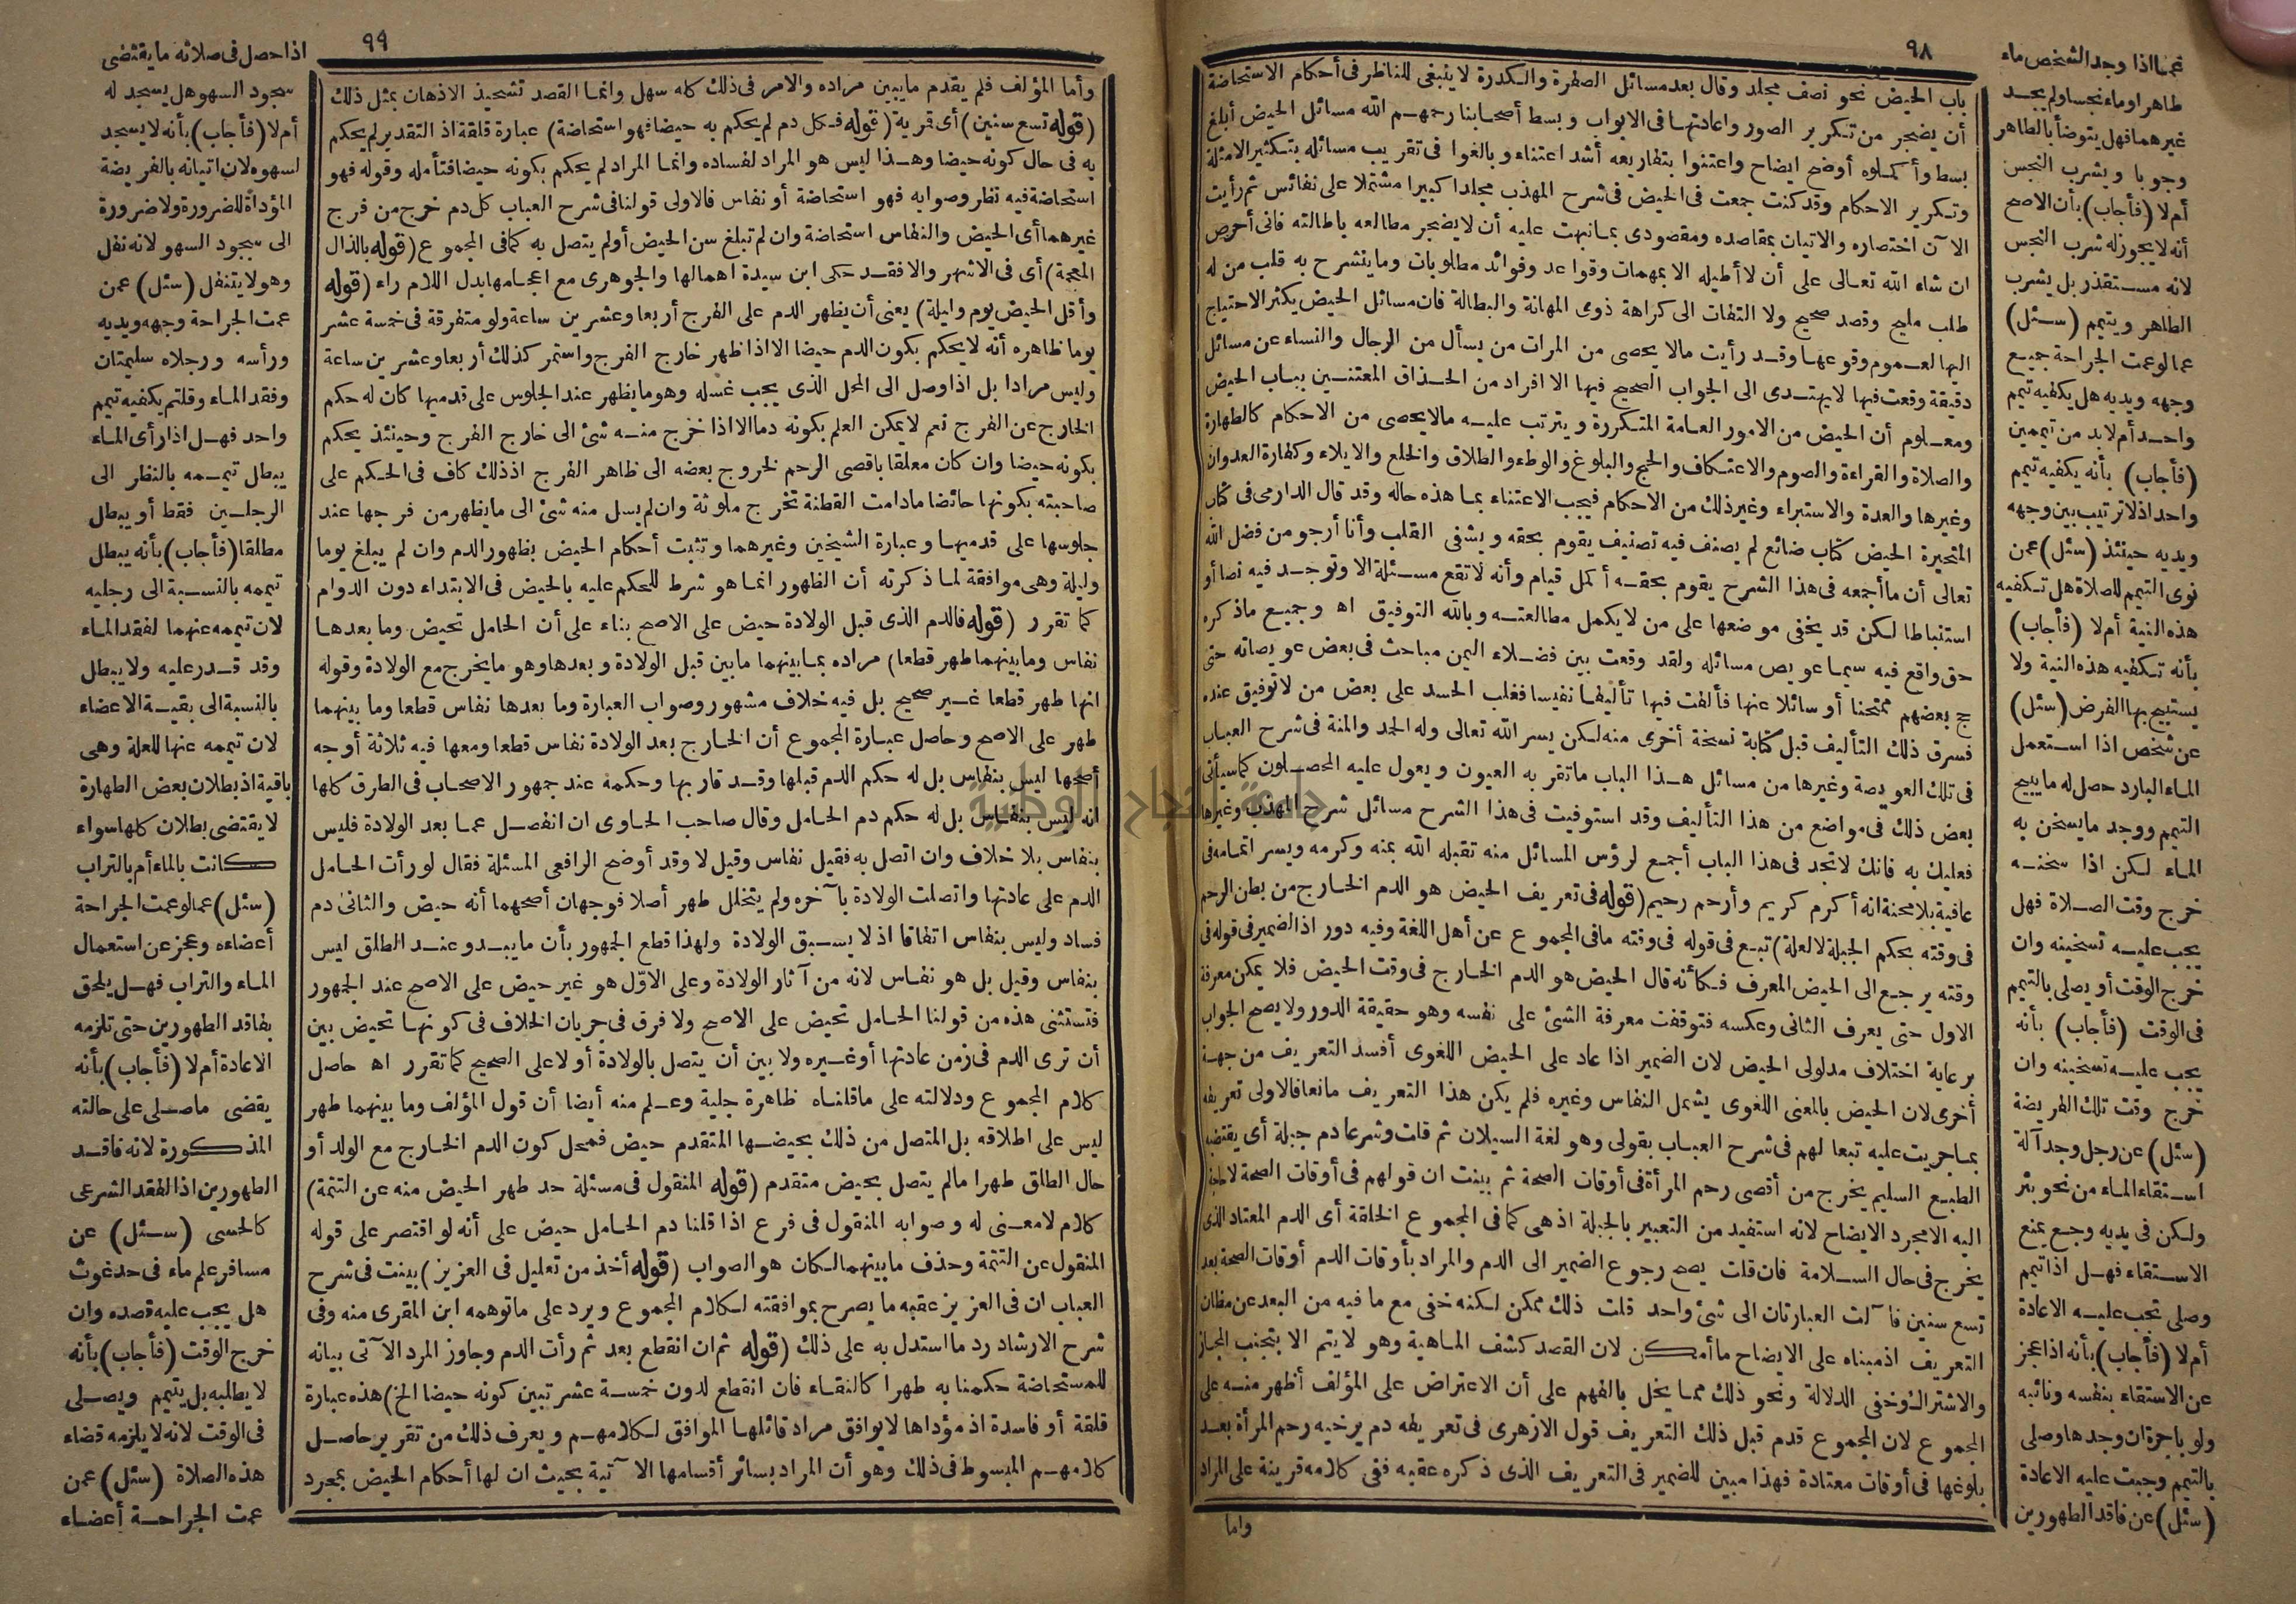 ٩٨
باب الحيض نحو نصف مجلد وقال بعد مسائل الصفرة والكدرة لا ينبغى للناظر فى أحكام الاستحاضة
أن يضجر من تكرير الصور واعادتها فى الابواب وبسط أصحابنا رحمهم الله مسائل الحيض أبلغ
بسط وأكملوه أوضح ايضاح واعتنوا بتفاريعه أشد اعتناء وبالغوا فى تقريب مسائله بتكثير الامثلة
وتكرير الاحكام وقد كنت جمعت فى الحيض فى شرح المهذب مجلدا كبيرا مشتملا على نفائس ثم رأيت
الآن اختصاره والاتيان بمقاصده ومقصودى بما نبهت عليه أن لا يضجر مطالعه باطالته فانى أحرص
ان شاء الله تعالى على أن لا أطيله الا بمهمات وقواعد وفوائد مطلوبات وما ينشرح به قلب من له
طلب مليح وقصد صحيح ولا التفات الى كراهة ذوى المهانة والبطالة فان مسائل الحيض يكثر الاحتياج
اليها لعموم وقوعها وقد رأيت مالا يحصى من المرات من يسأل من الرجال والنساء عن مسائل
دقيقة وقعت فيها لا يهتدى الى الجواب الصحيح فيها الا افراد من الحذاق المعتنين بباب الحيض
ومعلوم أن الحيض من الامور العامة المتكررة ويترتب عليه مالا يحصى من الاحكام كالطهارة
والصلاة والقراءة والصوم والاعتكاف والحج والبلوغ والوطء والطلاق والخلع والايلاء وكفارة العدوان
وغيرها والعدة والاستبراء وغير ذلك من الاحكام فيجب الاعتناء بما هذه حاله وقد قال الدارمى فى كتاب
المتحيرة الحيض كتاب ضائع لم يصنف فيه تصنيف يقوم بحقه ويشفى القلب وأنا أرجو من فضل الله
تعالى أن ما أجمعه فى هذا الشرح يقوم بحقه أكمل قيام وأنه لا تقع مسئلة الا وتوجد فيه نصا أو
استنباطا لكن قد يخفى موضعها على من لا يكمل مطالعته وبالله التوفيق اه وجميع ماذكره
حق واقع فيه سيما عويص مسائله ولقد وقعت بين فضلاء اليمن مباحث فى بعض عويصاته حتى
حج بعضهم ممتحنا أو سائلا عنها فألفت فيها تأليفا نفيسا فغلب الحسد على بعض من لا توفيق عنده
فسرق ذلك التأليف قبل كتابة نسخة أخرى منه لكن يسر الله تعالى وله الحمد والمنة فى شرح العباب
فى تلك العويصة وغيرها من مسائل هذا الباب ما تقر به العيون ويعول عليه المحصلون كما سيأتى
بعض ذلك فى مواضع من هذا التأليف وقد استوفيت فى هذا الشرح مسائل شرح المهذب وغيرها
فعليك به فانك لا تجد فى هذا الباب أجمع لرؤس المسائل منه تقبله الله بمنه وكرمه ويسر اتمامه فى
عافية بلا محنة انه أكرم كريم وأرحم رحيم (قوله فى تعريف الحيض هو الدم الخارج من بطن الرحم
فى وقته بحكم الجبلة لا لعلة) تبع فى قوله فى وقته مافى المجموع عن أهل اللغة وفيه دور اذ الضمير فى قوله فى
وقته يرجع الى الحيض المعرف فكأنه قال الحيض هو الدم الخارج فى وقت الحيض فلا يمكن معرفة
الاول حتى يعرف الثانى وعكسه فتوقفت معرفة الشئ على نفسه وهو حقيقة الدور ولا يصح الجواب
برعاية اختلاف مدلولى الحيض لان الضمير اذا عاد على الحيض اللغوى أفسد التعريف من جهة
أخرى لان الحيض بالمعنى اللغوى يشمل النفاس وغيره فلم يكن هذا التعريف مانعا فالاولى تعريفه
بما جريت عليه تبعا لهم فى شرح العباب بقولى وهو لغة السيلان ثم قلت وشرعا دم جبلة أى يقتضيه
الطبع السليم يخرج من أقصى رحم المرأة فى أوقات الصحة ثم بينت ان قولهم فى أوقات الصحة لا حاجة
اليه الا مجرد الايضاح لانه استفيد من التعبير بالجبلة اذ هى كما فى المجموع الخلقة أى الدم المعتاد الذى
يخرج فى حال السلامة فان قلت يصح رجوع الضمير الى الدم والمراد بأوقات الدم أوقات الصحة بعد
تسع سنين فآلت العبارتان الى شئ واحد قلت ذلك ممكن لكنه خفى مع ما فيه من البعد عن مظان
التعريف اذ مبناه على الايضاح ما أمكن لان القصد كشف الماهية وهو لا يتم الا بتجنب المجاز
والاشتراك وخفى الدلالة ونحو ذلك مما يخل بالفهم على أن الاعتراض على المؤلف أظهر منه على
المجموع لان المجموع قدم قبل ذلك التعريف قول الازهرى فى تعريفه دم يرخيه رحم المرأة بعد
بلوغها فى أوقات معتادة فهذا مبين للضمير فى التعريف الذى ذكره عقبه ففى كلامه قرينة على المراد
واما
عما اذا وجد الشخص ماء
طاهرا وماء نجسا ولم يجد
غيرهما فهل يتوضأ بالطاهر
وجوبا ويشرب النجس
أم لا (فأجاب) بأن الاصح
أنه لا يجوز له شرب النجس
لانه مستقذر بل يشرب
الطاهر ويتيمم (سئل)
عما لو عمت الجراحة جميع
وجهه ويديه هل يكفيه تيمم
واحد أم لا بد من تيممين
(فأجاب) بأنه يكفيه تيمم
واحد اذ لا ترتيب بين وجهه
ويديه حينئذ (سئل) عمن
نوى التيمم للصلاة هل تكفيه
هذه النية أم لا (فأجاب)
بأنه تكفيه هذه النية ولا
يستبيح بها الفرض (سئل)
عن شخص اذا استعمل
الماء البارد حصل له ما يبيح
التيمم ووجد ما يسخن به
الماء لكن اذا سخنه
خرج وقت الصلاة فهل
يجب عليه تسخينه وان
خرج الوقت أو يصلى بالتيمم
فى الوقت (فأجاب) بأنه
يجب عليه تسخينه وان
خرج وقت تلك الفريضة
(سئل) عن رجل وجد آلة
استقاء الماء من نحو بئر
ولكن فى يديه وجع يمنع
الاستقاء فهل اذا تيمم
وصلى تجب عليه الاعادة
أم لا (فأجاب) بأنه اذا عجز
عن الاستقاء بنفسه ونائبه
ولو باجرة ان وجدها وصلى
بالتيمم وجبت عليه الاعادة
(سئل) عن فاقد الطهورين
٩٩
وأما المؤلف فلم يقدم ما يبين مراده والامر فى ذلك كله سهل وانما القصد تشحيذ الاذهان بمثل ذلك
(قوله تسع سنين) أى قمرية (قوله فكل دم لم يحكم به حيضا فهو استحاضة) عبارة قلقة اذ التقدير لم يحكم
به فى حال كونه حيضا وهذا ليس هو المراد لفساده وانما المراد لم يحكم بكونه حيضا فتأمله وقوله فهو
استحاضة فيه نظر وصوابه فهو استحاضة أو نفاس فالاولى قولنا فى شرح العباب كل دم خرج من فرج
غيرهما أى الحيض والنفاس استحاضة وان لم تبلغ سن الحيض أو لم يتصل به كما فى المجموع (قوله بالذال
المعجمة) أى فى الاشهر والا فقد حكى ابن سيدة اهمالها والجوهرى مع اعجامها بدل اللام راء (قوله
وأقل الحيض يوم وليلة) يعنى أن يظهر الدم على الفرج أربعا وعشرين ساعة ولو متفرقة فى خمسة عشر
يوما ظاهره أنه لا يحكم بكون الدم حيضا الا اذا ظهر خارج الفرج واستمر كذلك أربعا وعشرين ساعة
وليس مرادا بل اذا وصل الى المحل الذى يجب غسله وهو ما يظهر عند الجلوس على قدميها كان له حكم
الخارج عن الفرج نعم لا يمكن العلم بكونه دما الا اذا خرج منه شئ الى خارج الفرج وحينئذ يحكم
بكونه حيضا وان كان معلقا باقصى الرحم لخروج بعضه الى ظاهر الفرج اذ ذلك كاف فى الحكم على
صاحبته بكونها حائضا مادامت القطنة تخرج ملوثة وان لم يسل منه شئ الى ما يظهر من فرجها عند
جلوسها على قدميها وعبارة الشيخين وغيرهما وتثبت أحكام الحيض بظهور الدم وان لم يبلغ يوما
وليلة وهى موافقة لما ذكرته أن الظهور انما هو شرط للحكم عليه بالحيض فى الابتداء دون الدوام
كما تقرر (قوله فالدم الذى قبل الولادة حيض على الاصح بناء على أن الحامل تحيض وما بعدها
نفاس وما بينهما طهر قطعا) مراده بما بينهما ما بين قبل الولادة وبعدها وهو ما يخرج مع الولادة وقوله
انها طهر قطعا غير صحيح بل فيه خلاف مشهور وصواب العبارة وما بعدها نفاس قطعا وما بينهما
طهر على الاصح وحاصل عبارة المجموع أن الخارج بعد الولادة نفاس قطعا ومعها فيه ثلاثة أوجه
أصحها ليس بنفاس بل له حكم الدم قبلها وقد قاربها وحكمه عند جمهور الاصحاب فى الطرق كلها
انه ليس بنفاس بل له حكم دم الحامل وقال صاحب الحاوى ان انفصل عما بعد الولادة فليس
بنفاس بلا خلاف وان اتصل به فقيل نفاس وقيل لا وقد أوضح الرافعى المسئلة فقال لو رأت الحامل
الدم على عادتها واتصلت الولادة بآخره ولم يتخلل طهر أصلا فوجهان أصحهما أنه حيض والثانى دم
فساد وليس بنفاس اتفاقا اذ لا يسبق الولادة ولهذا قطع الجمهور بأن ما يبدو عند الطلق ليس
بنفاس وقيل بل هو نفاس لانه من آثار الولادة وعلى الاوّل هو غير حيض على الاصح عند الجمهور
فتستثنى هذه من قولنا الحامل تحيض على الاصح ولا فرق فى جريان الخلاف فى كونها تحيض بين
أن ترى الدم فى زمن عادتها أو غيره ولا بين أن يتصل بالولادة أو لا على الصحيح كما تقرر اه حاصل
كلام المجموع ودلالته على ما قلناه ظاهرة جلية وعلم منه أيضا أن قول المؤلف وما بينهما طهر
ليس على اطلاقه بل المتصل من ذلك بحيضها المتقدم حيض فمحل كون الدم الخارج مع الولد أو
حال الطلق طهرا مالم يتصل بحيض متقدم (قوله المنقول فى مسئلة حد طهر الحيض منه عن التتمة)
كلام لا معنى له وصوابه المنقول فى فرع اذا قلنا دم الحامل حيض على أنه لو اقتصر على قوله
المنقول عن التتمة وحذف ما بينهما لكان هو الصواب (قوله أخذ من تعليل فى العزيز) بينت فى شرح
العباب ان فى العزيز عقبه ما يصرح بموافقته لكلام المجموع ويرد على ما توهمه ابن المقرى منه وفى
شرح الارشاد رد ما استدل به على ذلك (قوله ثم ان انقطع بعد ثم رأت الدم وجاوز المرد الآتى بيانه
للمستحاضة حكمنا به طهرا كالنقاء فان انقطع لدون خمسة عشر تبين كونه حيضا الخ) هذه عبارة
قلقة أو فاسدة اذ مؤداها لا يوافق مراد قائلها الموافق لكلامهم ويعرف ذلك من تقرير حاصل
كلامهم المبسوط فى ذلك وهو أن المراد بسائر أقسامها الآتية بحيث ان لها أحكام الحيض بمجرد
اذا حصل فى صلاته ما يقتضى
سجود السهو هل يسجد له
أم لا (فأجاب) بأنه لا يسجد
لسهوه لان اتيانه بالفريضة
المؤداة للضرورة ولا ضرورة
الى سجود السهو لانه نفل
وهو لا يتنفل (سئل) عمن
عمت الجراحة وجهه ويديه
ورأسه ورجلاه سليمتان
وفقد الماء وقلتم يكفيه تيمم
واحد فهل اذا رأى الماء
يبطل تيممه بالنظر الى
الرجلين فقط أو يبطل
مطلقا (فأجاب) بأنه يبطل
تيممه بالنسبة الى رجليه
لان تيممه عنهما لفقد الماء
وقد قدر عليه ولا يبطل
بالنسبة الى بقية الاعضاء
لان تيممه عنها للعلة وهى
باقية اذ بطلان بعض الطهارة
لا يقتضى بطلان كلها سواء
كانت بالماء أم بالتراب
(سئل) عما لو عمت الجراحة
أعضاءه وعجز عن استعمال
الماء والتراب فهل يلحق
بفاقد الطهورين حتى تلزمه
الاعادة أم لا (فأجاب) بأنه
يقضى ما صلى على حالته
المذكورة لانه فاقد
الطهورين اذ الفقد الشرعى
كالحسى (سئل) عن
مسافر علم ماء فى حد غوث
هل يجب عليه قصده وان
خرج الوقت (فأجاب) بأنه
لا يطلبه بل يتيمم ويصلى
فى الوقت لانه لا يلزمه قضاء
هذه الصلاة (سئل) عمن
عمت الجراحة أعضاء
جامعة النجاح الوطنية